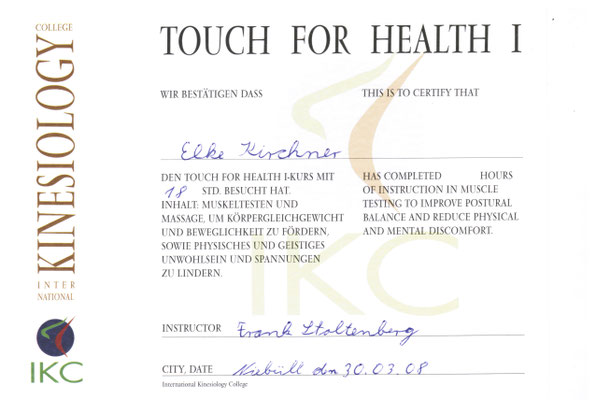 COLLEGE
KINESIOLOGY
INTER
NATIONAL
IKC
TOUCH FOR HEALTH I
WIR BESTÄTIGEN DASS
THIS IS TO CERTIFY THAT
Elke Kirchner
DEN TOUCH FOR HEALTH I-KURS MIT
18 STD. BESUCHT HAT.
INHALT: MUSKELTESTEN UND
MASSAGE, UM KÖRPERGLEICHGEWICHT
UND BEWEGLICHKEIT ZU FÖRDERN,
SOWIE PHYSISCHES UND GEISTIGES
UNWOHLSEIN UND SPANNUNGEN
ZU LINDERN.
HAS COMPLETED HOURS
OF INSTRUCTION IN MUSCLE
TESTING TO IMPROVE POSTURAL
BALANCE AND REDUCE PHYSICAL
AND MENTAL DISCOMFORT.
IKC
INSTRUCTOR Frank Stoltenberg
CITY, DATE Niebüll den 30.03.08
International Kinesiology College